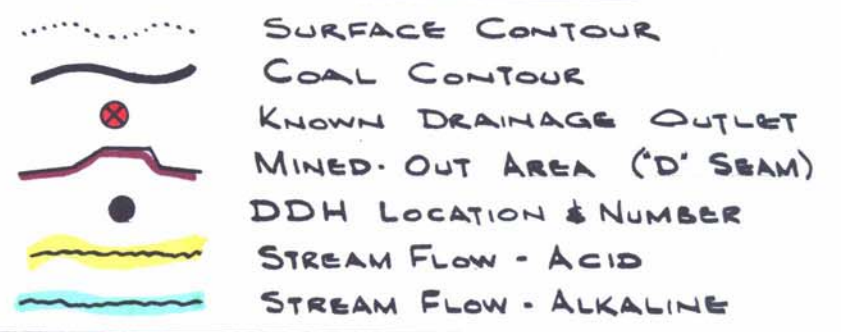 SURFACE CONTOUR
COAL CONTOUR
KNOWN DRAINAGE OUTLET
MINED-OUT AREA ("D" SEAM)
DDH LOCATION & NUMBER
STREAM FLOW - ACID
STREAM FLOW - ALKALINE